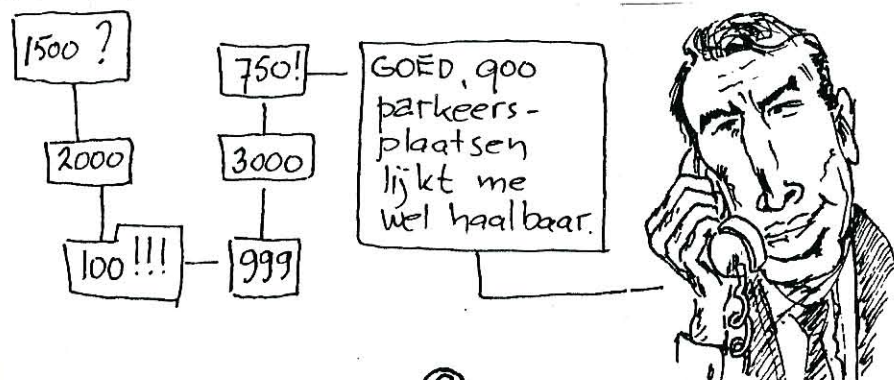 1500 ?
2000
100 !!!
999
3000
750!
GOED, 900
parkeers-
plaatsen
lijkt me
wel haalbaar.